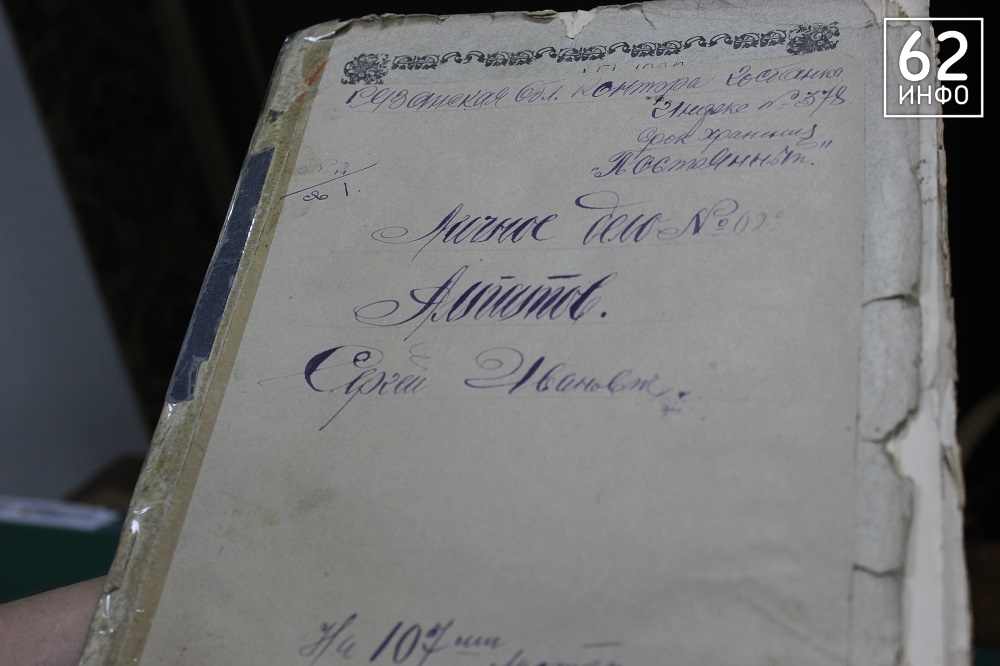 62
ИНФО
Рязанская обл. контора Госбанка
Индекс № 378
Срок хранения
"Постоянный."
Личное дело № 02
Алпатов.
Сергей Иванович.
На 107 ми
листах